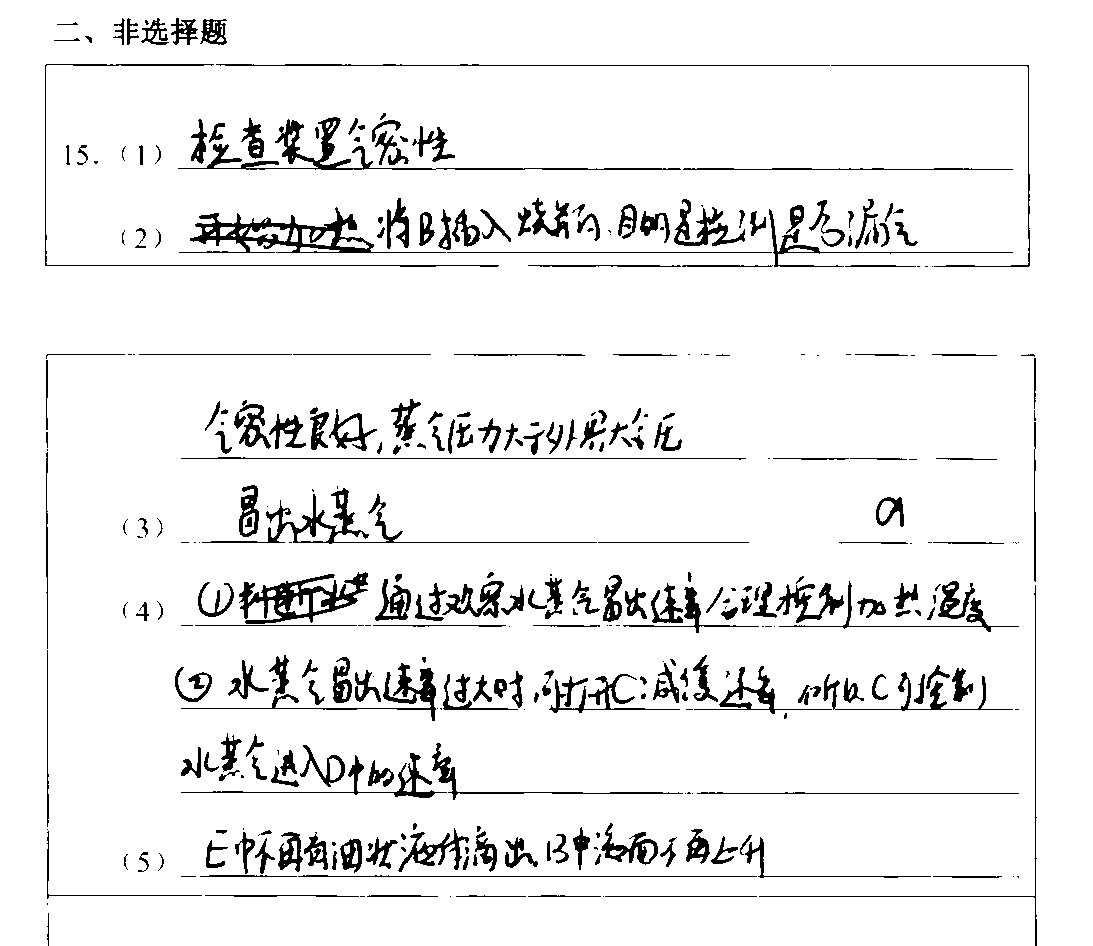 二、非选择题
15.（1）检查装置气密性
（2）将B插入烧瓶内,目的是检测是否漏气
气密性良好,蒸气压力大于外界大气压
（3）冒出水蒸气 a
（4）①通过观察水蒸气冒出速率合理控制加热温度
② 水蒸气冒出速率过大时,可打开C:减缓速率,所以C可控制
水蒸气进入D中的速率
（5）E中不再有油状液体滴出,B中液面不再上升